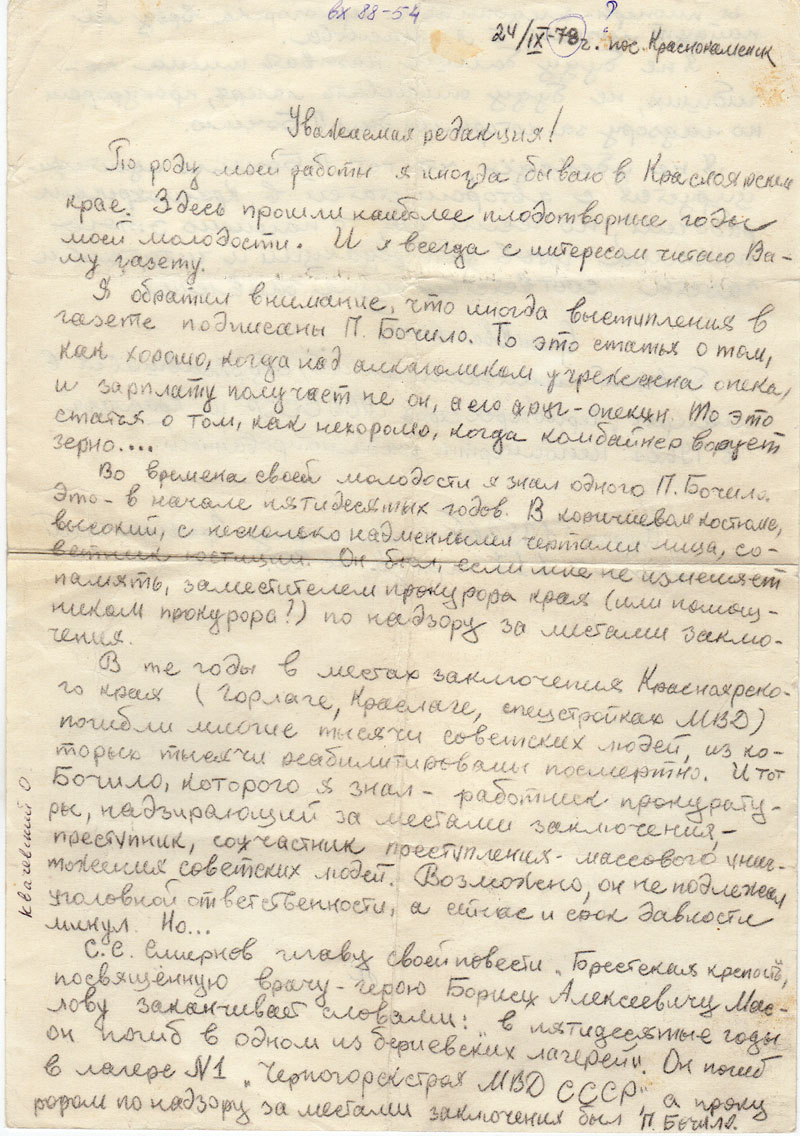 вх 88-54
?
24/IX-78 г. пос. Краснокаменск
Уважаемая редакция!
По роду моей работы я иногда бываю в Красноярском
крае. Здесь прошли наиболее плодотворные годы
моей молодости. И я всегда с интересом читаю Ва-
шу газету.
Я обратил внимание, что иногда выступления в
газете подписаны П. Бочило. То это статья о том,
как хорошо, когда над алкоголиком учреждена опека,
и зарплату получает не он, а его друг-опекун. То это
статья о том, как нехорошо, когда комбайнер ворует
зерно....
Во времена своей молодости я знал одного П. Бочило.
Это - в начале пятидесятых годов. В коричневом костюме,
высокий, с несколько надменными чертами лица, со-
ветник юстиции. Он был, если мне не изменяет
память, заместителем прокурора края (или помощ-
ником прокурора?) по надзору за местами заклю-
чения.
В те годы в местах заключения Красноярско-
го края (Горлаге, Краслаге, спецстройках МВД)
погибли многие тысячи советских людей, из ко-
торых тысячи реабилитированы посмертно. И тот
Бочило, которого я знал - работник прокурату-
ры, надзирающий за местами заключения, -
преступник, соучастник преступления - массового унич-
тожения советских людей. Возможно, он не подлежал
уголовной ответственности, а сейчас и срок давности
минул. Но...
С.С. Смирнов главу своей повести „Брестская крепость",
посвящённую врачу-герою Борису Алексеевичу Мас-
лову заканчивает словами: „в пятидесятые годы
он погиб в одном из бериевских лагерей". Он погиб
в лагере N1 „Черногорскстрой МВД СССР", а проку
рором по надзору за местами заключения был П. Бочило.
Квашевский О.